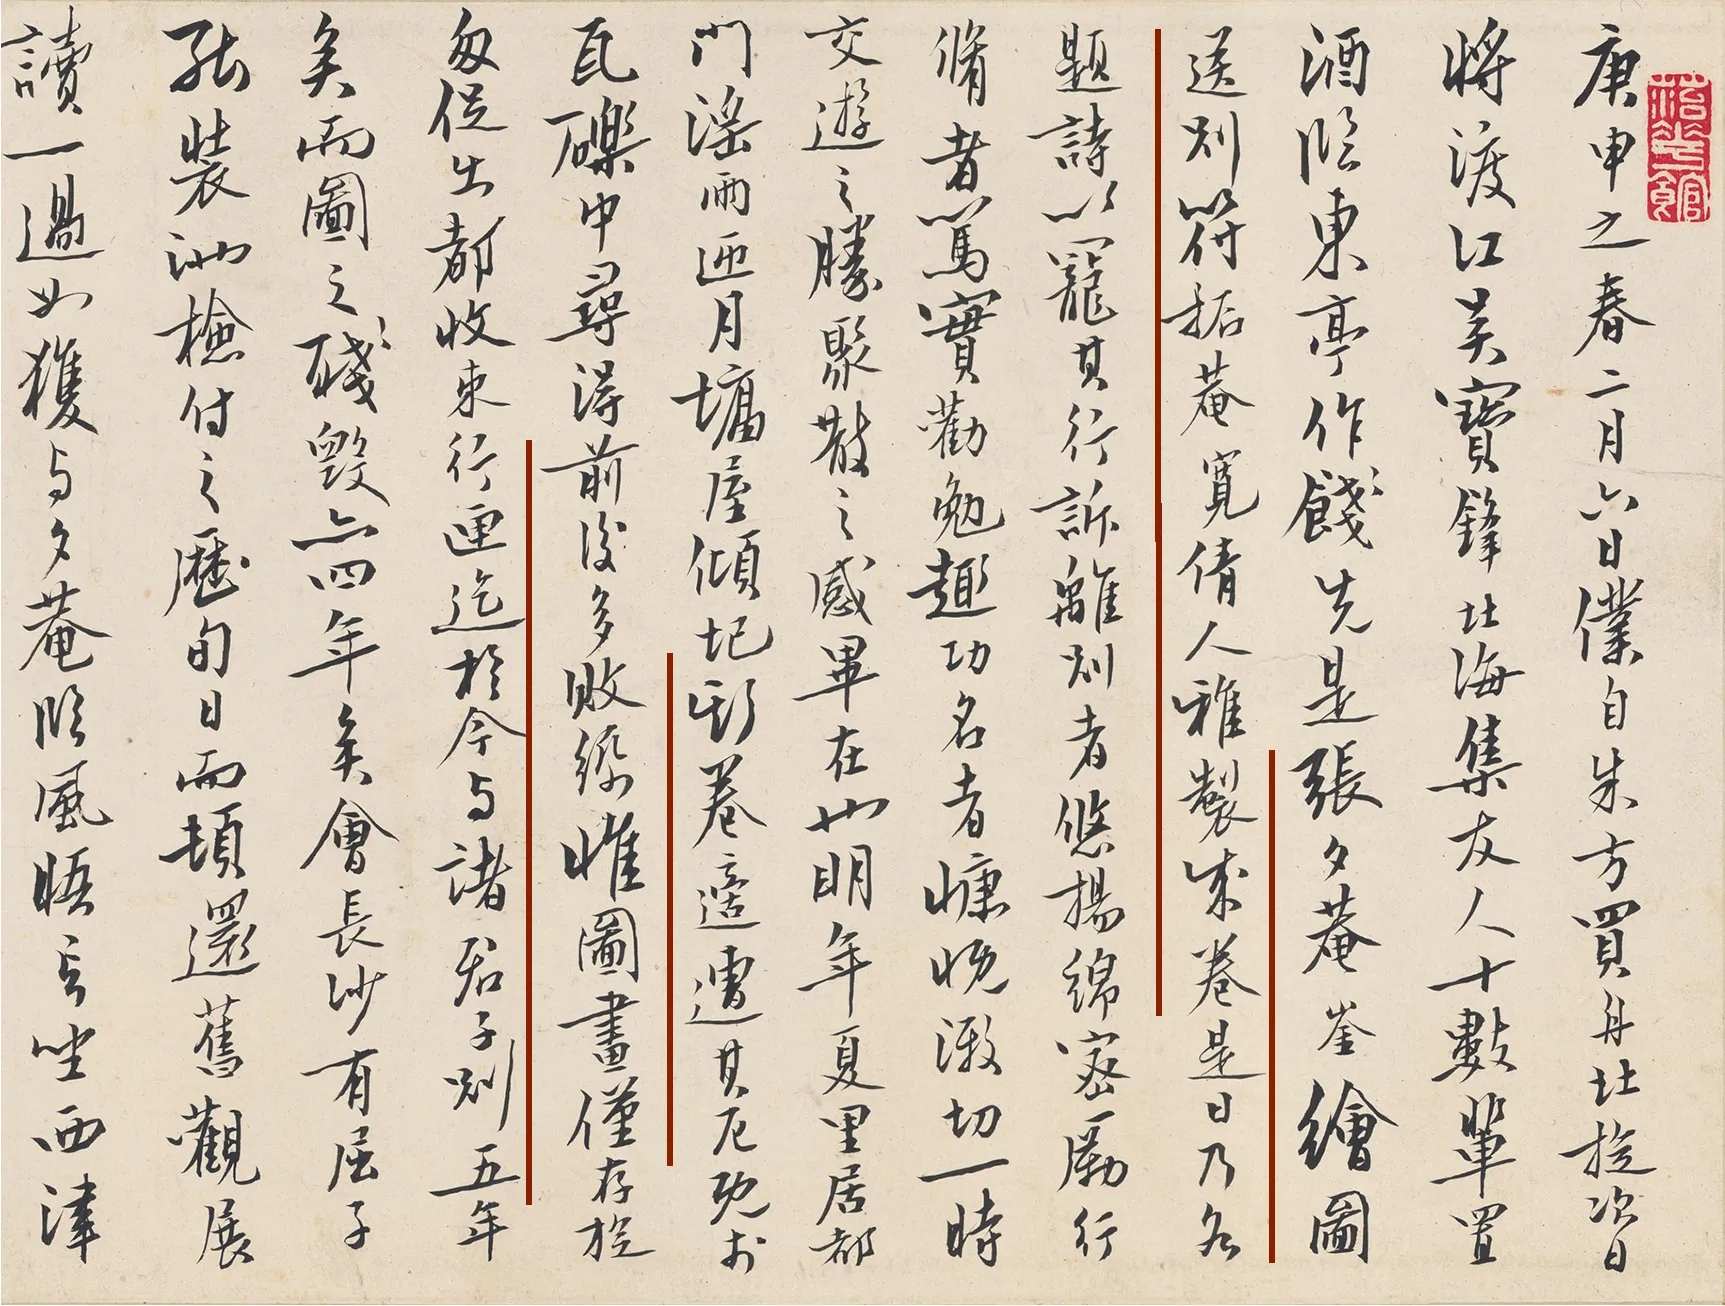 庚申之春二月六日僕自朱方買舟北旋次日
將渡江吳寶鋒北海集友人十數輩置
酒臨東亭作餞先是張夕菴崟繪圖
送別符拓菴寬倩人雅製成卷是日乃各
題詩以寵其行訴離別者悠揚綿密厲行
脩者篤實勸勉趣功名者慷慨激切一時
交遊之勝聚散之感畢在此明年夏里居都
門淫雨匝月墉屋傾圮斯卷適遭其厄既於
瓦礫中尋得前後多敗絲惟圖畫僅存旋
匆促出都收束行匣迄於今与諸君子別五年
矣而圖之殘毀亦四年矣會長沙有屈子
裝池檢付之歷旬日而頓還舊觀展
讀一過如獲与夕菴臨風晤言坐西津